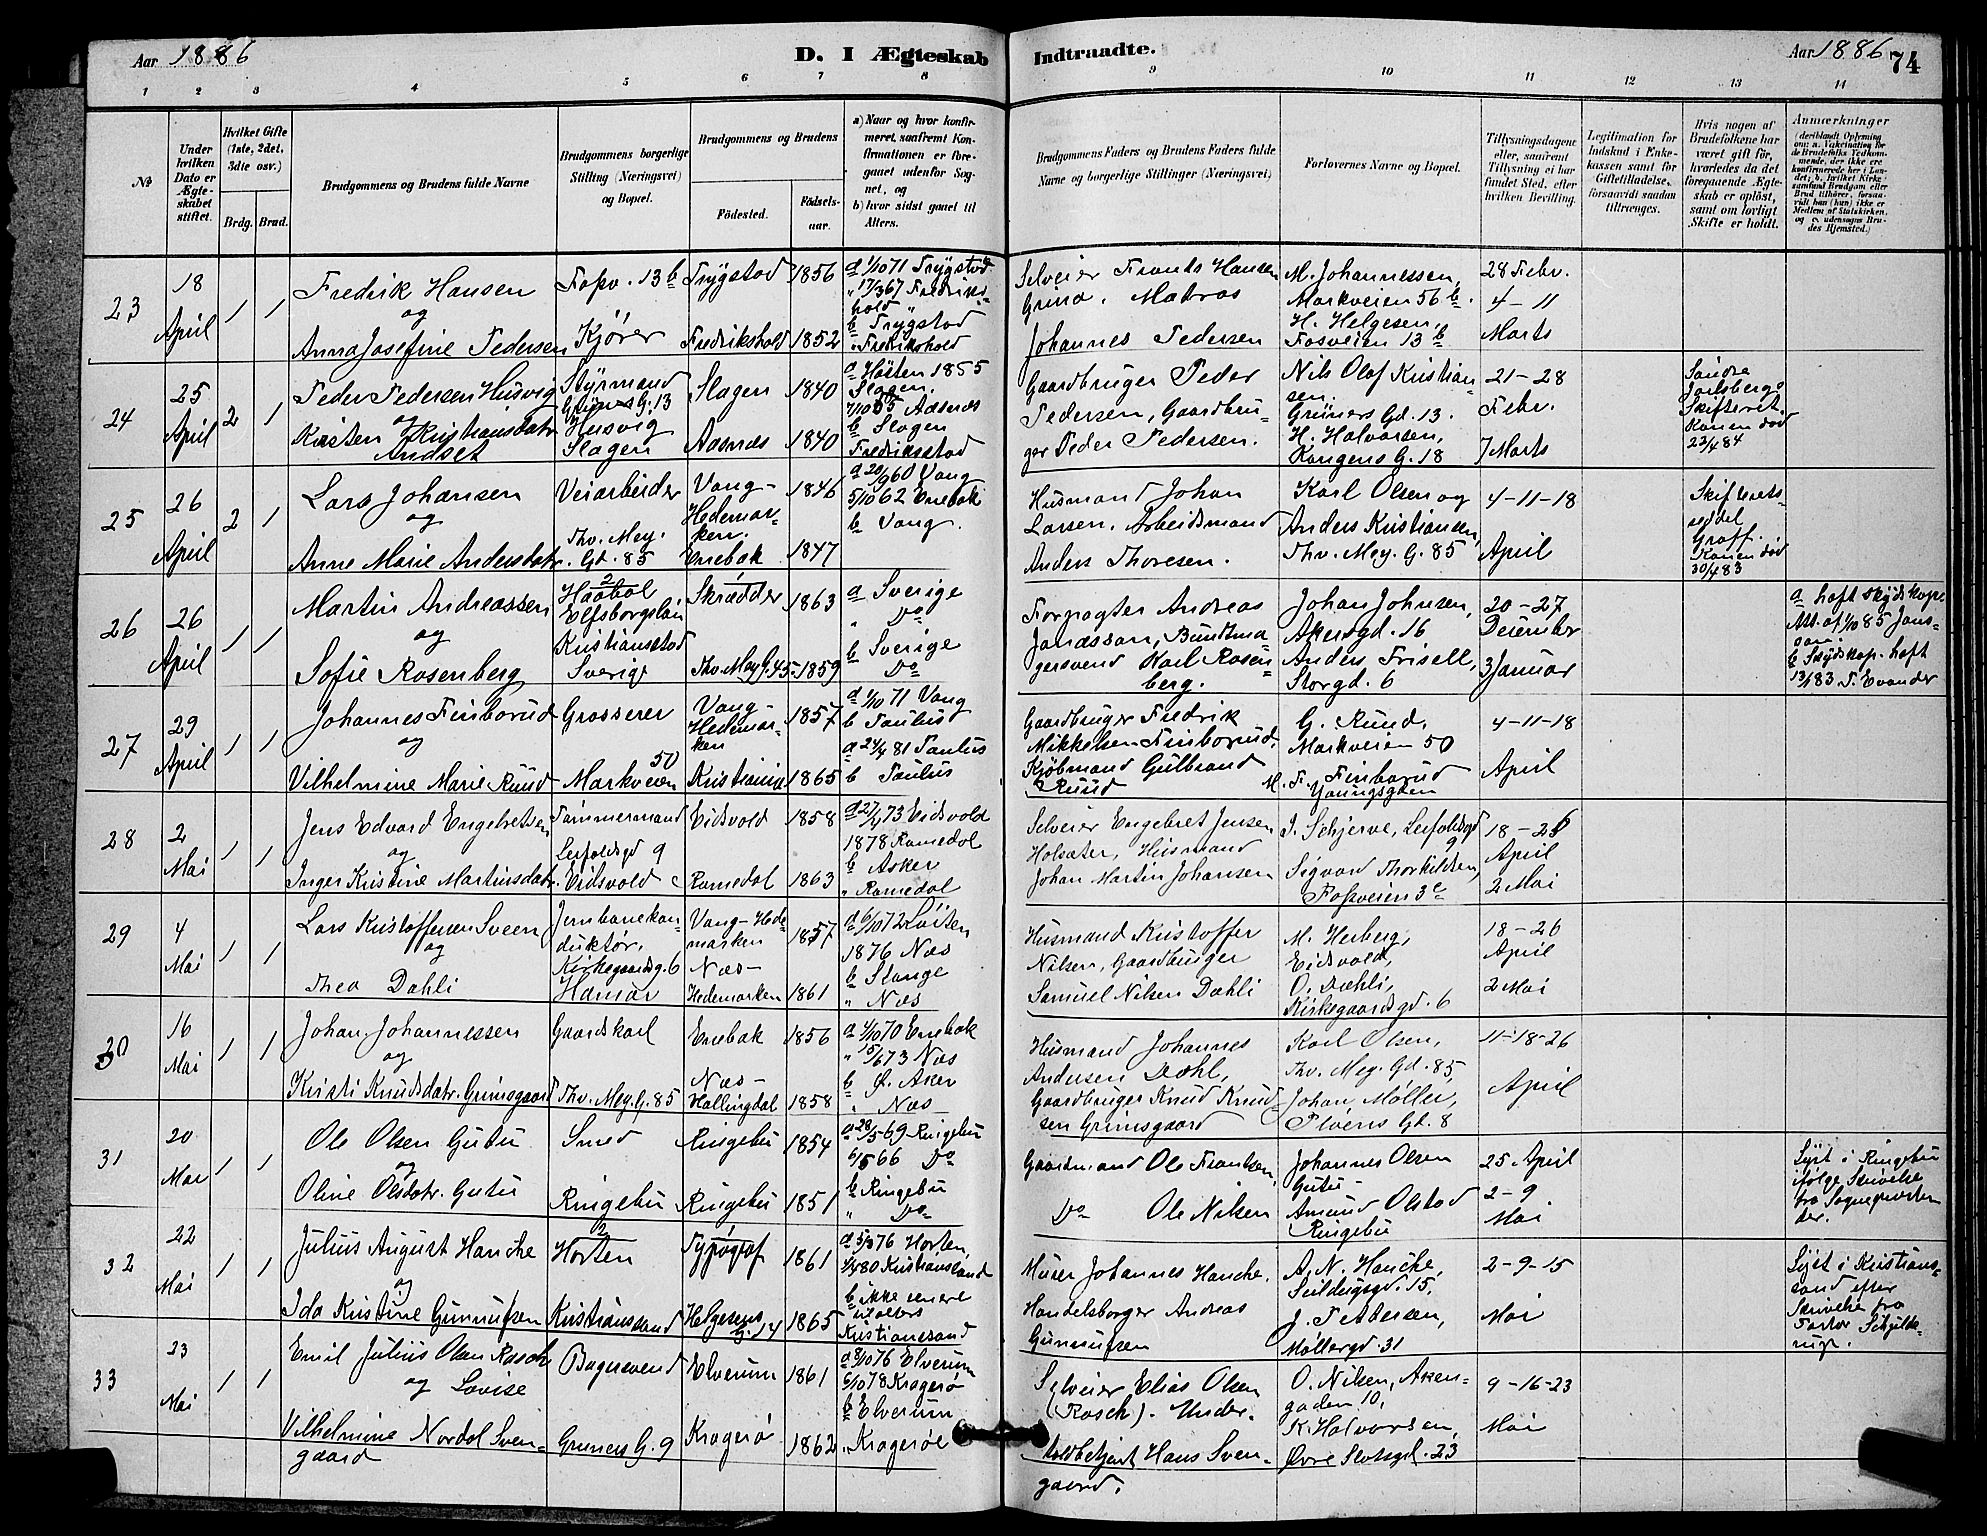 Aar 1886
D. I Ægteskab
Indtraadte.
Aar 1886
74
1 2 3 4 5 6 7 8 9 10 11 12 13 14
No
Under hvilken Dato er Ægteskabet stiftet.
Hvilket Gifte (1ste, 2det, 3die osv.)
Brdg. Brud.
Brudgommens og Brudens fulde Navne
Brudgommens borgerlige Stilling (Næringsvei) og Bopæl.
Brudgommens og Brudens
Fødested.
Fødselsaar.
a) Naar og hvor konfirmeret, saafremt Konfirmationen er foregaaet udenfor Sognet, og
b) hvor sidst gaaet til Alters.
Brudgommens Faders og Brudens Faders fulde Navne og borgerlige Stillinger (Næringsvei)
Forlovernes Navne og Bopæl.
Tillysningsdagene eller, saafremt Tillysning ei har fundet Sted, efter hvilken Bevilling.
Legitimation for Indskud i Enkekassen samt for Giftetilladelse, forsaavidt saadan tiltrænges.
Hvis nogen af Brudefolkene har været gift før, hvorledes da det foregaaende Ægteskab er opløst, samt om lovligt Skifte er holdt.
Anmærkninger
23
18 April
1 1
Fredrik Hansen
og
Anna Josefine Pedersen
Fosv. 13 b
Kjører
Trygstad 1856
Fredrikshald 1852
a 1/10 71 Trygstad
" 17/3 67 Fredrikshald
b Trygstad
" Fredrikshald
Selveier Frants Hansen
Grina. Matros
Johannes Pedersen
M. Johannessen,
Markveien 56 b.
H. Helgesen,
Fosveien 13 b
28 Febr.
4-11
Marts
24
25 April
2 1
Peder Pedersen Husvig
og
Kristen Kristiansdatr
Andset
Styrmand
Grüners G. 13
Husvig
Slagen
Slagen 1840
Aasnæs 1840
a Høsten 1855
Slagen.
7/10 55 Aasnæs
b Slagen
Fredriksstad
Gaardbruger Peder
Pedersen, Gaardbru-
ger Peder Pedersen.
Nils Olaf Kristian-
sen.
Grüners Gd. 13.
H. Halvorsen,
Kongens G. 18
21-28
Febr.
7 Marts
Søndre
Jarlsbergs
Skifteret.
Konen død
23/4 84
25
26 April
2 1
Lars Johansen
og
Anne Marie Andersdatr.
Veiarbeider
Thv. Mey.
Gd. 85
Vang-
Hedemar-
ken. 1846
Enebak 1847
a 20/9 60 Vang
5/10 62 Enebak
b Vang.
Husmand Johan
Larsen. Arbeidsmand
Anders Thoresen.
Karl Olsen og
Anders Kristiansen,
Thv. Mey. G. 85
4-11-18
April
Skifterets-
seddel
Graff.
Konen død
30/4 83
26
26 April
1 1
Martin Andreassen
og
Sofie Rosenberg
2
Haabol
Elfsborgslän
Kristianstad
Sverige
Skrædder 1863
Thv. Mey G. 45. 1859
a Sverige
" Do
b Sverige
Do
Forpagter Andreas
Jonasson, Bundtma-
gersvend Karl Rosen-
berg.
Johan Johnsen,
Akersgd. 16
Anders Frisell,
Storgd. 6
20-27
December
3 Januar
a haft skydskopr
27
29 April
1 1
Johannes Finborud
og
Vilhelmine Marie Ruud
Grosserer
50
Markveien
Vang-
Hedemar-
ken 1857
Kristiania 1865
a 1/10 71 Vang
b Paulus
a 24/4 81 Paulus
b Paulus
Gaardbruger Fredrik
Mikkelsen Finborud.
Kjøbmand Gulbrand
Ruud
G. Ruud,
Markveien 50
M. F. Finborud
Youngsgaden
4-11-18
April
28
2 Mai
1 1
Jens Edvard Engebretsen
og
Inger Kristine Martinsdatr.
Tømmermand
Leifoldsgd 9
Eidsvold
Eidsvold 1858
Romedal 1863
a 27/4 73 Eidsvold
1878 Romedal
b Asker
" Romedal
Selveier Engebret Jensen
Holsæter, Husmand
Johan Martin Johansen
J. Schjerve, Leifoldsgd
9
Sigvard Thorkildsen,
Fossveien 3 c
18-26
April
2 Mai
29
4 Mai
1 1
Lars Kristoffersen Sveen
og
Thea Dahli
Jernbanekon-
duktør,
Kirkegaardsg. 6
Hamar
Vang-Hede-
marken 1857
Næs-
Hedemarken 1861
a 6/10 72 Løiten
1876 Næs
b Stange
" Næs
Husmand Kristoffer
Nilsen, Gaardbruger
Samuel Nilsen Dæhli
M. Herberg,
Eidsvold,
O. Dæhli,
Kirkegaardsgd. 6
18-26
April
2 Mai
30
16 Mai
1 1
Johan Johannessen
og
Kristi Knudsdatr. Grimsgaard
Gaardskarl
Thv. Mey. G. 85
Enebak 1856
Næs-
Hallingdal 1858
a 2/10 70 Enebak
" 15/6 73 Næs
b Ø. Aker
" Næs
Husmand Johannes
Andersen Dæhl,
Gaardbruger Knud Knud-
sen Grimsgaard
Karl Olsen,
Thv. Mey. Gd. 85,
Johan Møller,
Pløens Gd. 8
11-18-26
April
31
20 Mai
1 1
Ole Olsen Gutu
og
Oline Olsdatr. Gutu
Smed
Ringebu
Ringebu 1854
Ringebu 1851
a 28/5 69 Ringebu
6/5 66 Do
b Ringebu
" Do
Gaardmand Ole Frantsen,
Do Ole Nilsen
Johannes Olsen
Gutu-
Amund Olstad
Ringebu
25 April
2-9
Mai
Lyst i Ringebu
ifølge Skrivelse
fra Sognepræsten
der.
32
22 Mai
1 1
Julius August Hanche
og
Ida Kristine Gunnufsen
2
Horten
Kristianssand
Typograf 1861
Helgesens
G. 14 1865
a 5/3 76 Horten,
1/4 80 Kristianssand
b ikke senere
til alters
Kristianssand
Murer Johannes Hanche.
Handelsborger Andreas
Gunnufsen
A. N. Hanche,
Seildugsgd. 15,
J. Pettersen,
Møllergd. 31
2-9-15
Mai
Lyst i Kristians-
sand efter
Skrivelse fra
Pastor Schjelde-
rup.
33
23 Mai
1 1
Emil Julius Olsen Rasch
og Lovise
Vilhelmine Nordal Sven-
gaard
Bagersvend
Gruners G. 9
Elverum 1861
Kragerø 1862
a 8/10 76 Elverum
6/10 78 Kragerø
b Elverum
" Kragerøe
Selveier Elias Olsen
(Rasch). Under-
toldbetjent Hans Sven-
gaard.
O. Nilsen, Akers-
gaden 10,
K. Halvorsen,
Øvre Slotsgd. 23
9-16-23
Mai